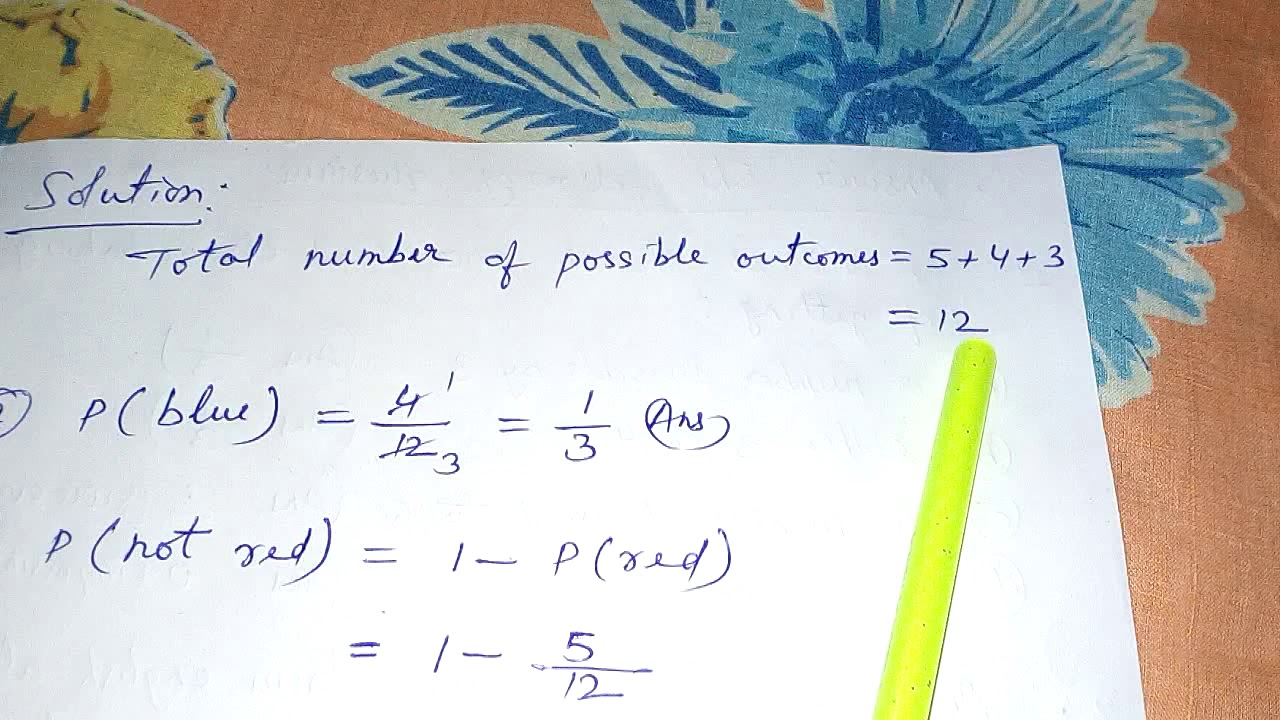 Solution:
Total number of possible outcomes = 5+4+3
= 12
P(blue) = 4/12 1 3 = 1/3 Ans
P(not red) = 1 - P(red)
= 1 - 5/12